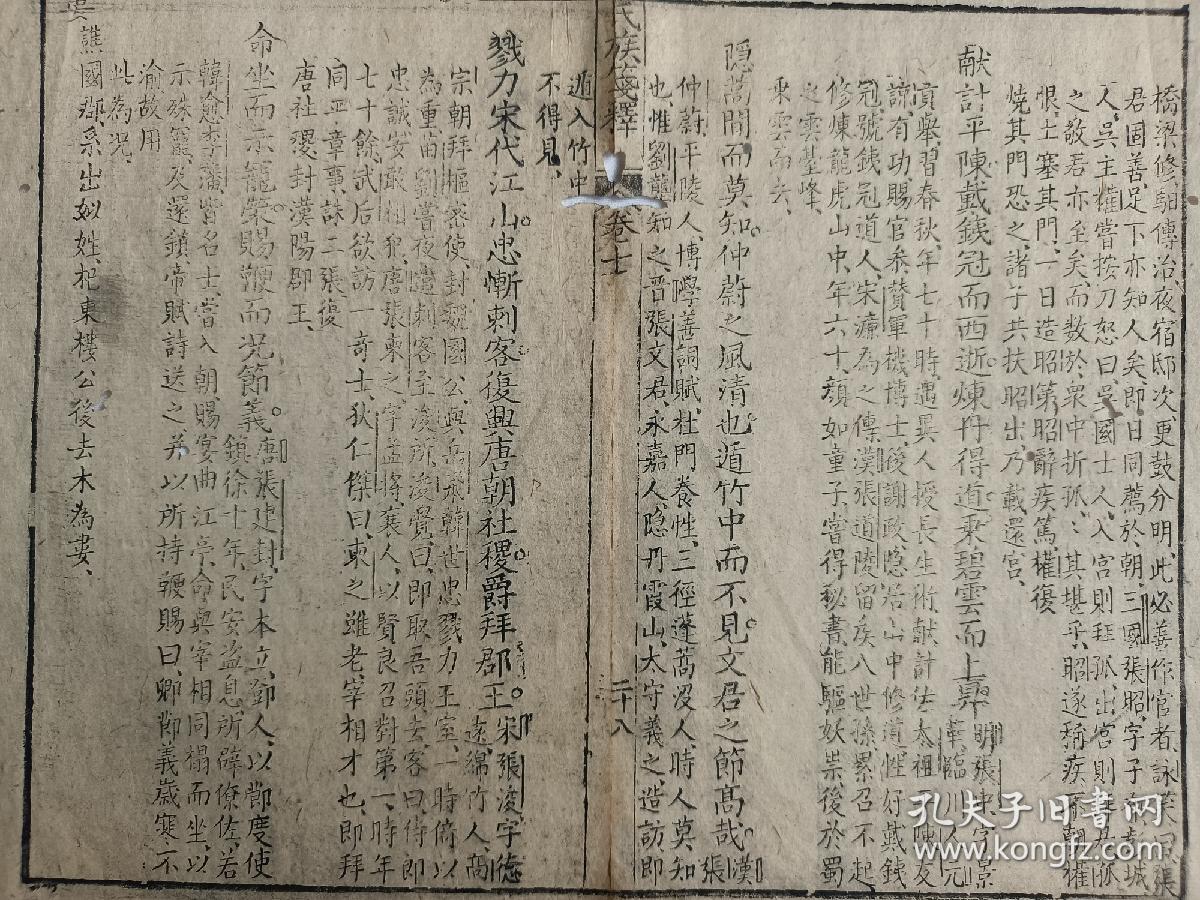 橋梁修馹傳治夜宿邸次更鼓分明此必善作官者詠笑曰張
君固善足下亦知人矣即日同薦於朝三國張昭字子布彭城
人吳主權嘗按刀怒曰吳國士人入宮則拜孤出宮則拜君孤
之敬君亦至矣而数於眾中折孤〻其堪乎昭遂稱疾不朝權
恨土塞其門一日造昭第昭辭疾篤權復
燒其門恐之諸子共扶昭出乃載還宮
献計平陳戴鐵冠而西逝煉丹得道乘碧雲而上昇明張中字景
華臨川人元
貢舉習春秋年七十時遇異人授長生術献計佐太祖陳友
諒有功賜官叅贊軍機博士後謝政隠居山中修道性好戴鐵
冠號鐵冠道人宋濂為之傳漢張道陵留矦八世孫累召不起
修煉龍虎山中年六十顔如童子嘗得秘書能驅妖祟後於蜀
之雲臺峰
乘雲而去
隠蒿間而莫知仲蔚之風清也遁竹中而不見文君之節髙哉漢張
仲蔚平陵人博學善詞賦杜門養性三徑蓬蒿没人時人莫知
也惟劉龔知之晋張文君永嘉人隠丹霞山太守義之造訪即
氏族箋釋
卷七
二十八
遁入竹中
不得見
戮力宋代江山忠慚刺客復興唐朝社稷爵拜郡王宋張浚字德
遠綿竹人髙
宗朝拜樞宻使封魏國公與岳飛韓世忠戮力王室一時倚以
為重苗劉嘗夜遣刺客至浚所浚覺曰即取吾頭去客曰侍郎
忠誠安敢相犯唐張柬之字孟將襄人以賢良召對第一時年
七十餘武后欲訪一奇士狄仁傑曰柬之雖老宰相才也即拜
同平章事誅二張復
唐社稷封漢陽郡王
命坐而示寵榮賜鞭而况節義唐張建封字本立鄧人以節度使
鎮徐十年民安盜息所辟僚佐若
韓愈李藩皆名士嘗入朝賜宴曲江亭命與宰相同榻而坐以
示殊寵及還鎮帝賦詩送之并以所持鞭賜曰卿節義歲寒不
渝故用
此為况
婁
譙國郷系出姒姓杞東樓公後去木為婁
孔夫子旧书网
www.kongfz.com